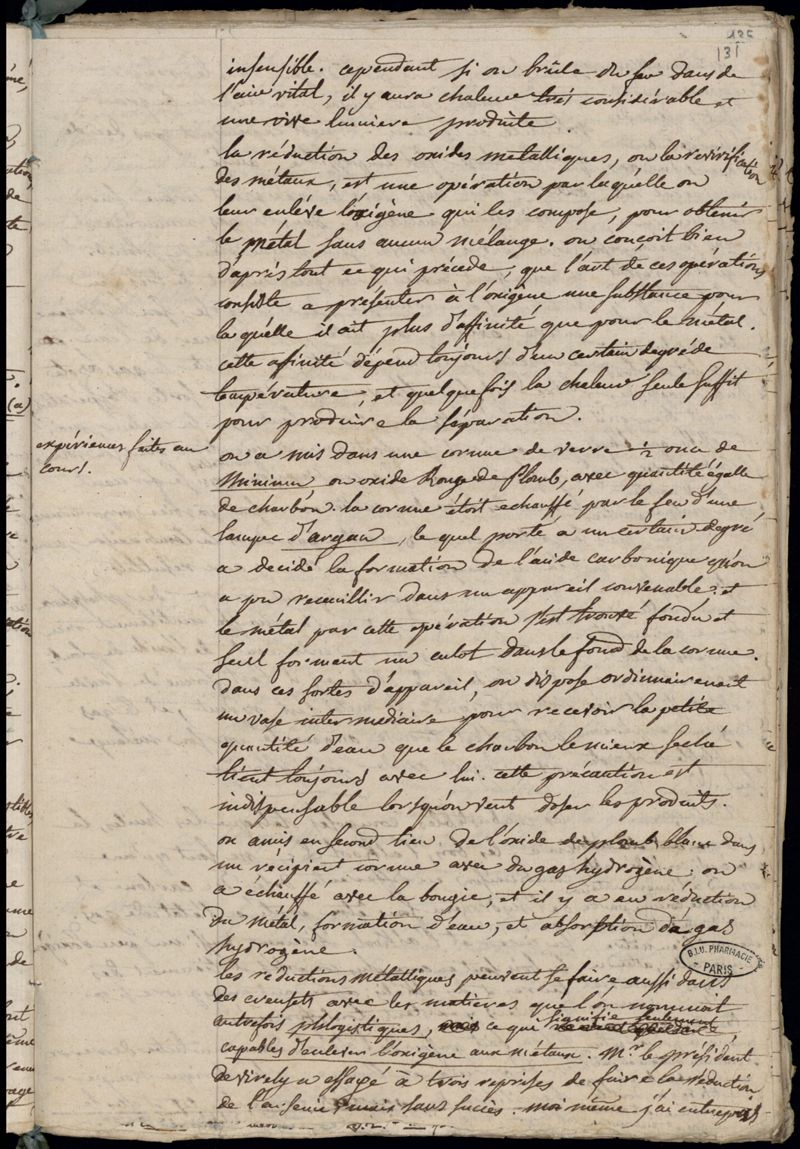 135
131
insensible. cependant si on brûle du fer dans de
l'air vital, il y aura chaleur très considérable et
une vive lumiere produite.
la réduction des oxides metalliques, ou la revivification
des métaux, est une opération par laquélle on
leur enlève l'oxigène qui les compose, pour obtenir
le métal sans aucun mélange. on conçoit bien
d'après tout ce qui précede, que l'art de ces opérations
consiste a présenter à l'oxigène une substance pour
la quélle il ait plus d'affinité que pour le métal.
cette affinité dépend toujours d'un certain degré de
température, et quelquefois la chaleur seule suffit
pour produire la séparation.
expériences faites au
cours.
on a mis dans une cornue de verre ½ once de
Minium ou oxide Rouge de Plomb, avec quantité égalle
de charbon. la cornue étoit echauffé par le feu d'une
lampe d'argan, le quel porté a un certain degré
a decidé la formation de l'acide carbonique qu'on
a pu recueillir dans un appareil convenable. et
le métal par cette opération s'est trouvé fondu et
seul formant un culot dans le fond de la cornue.
Dans ces sortes d'appareil, on dispose ordinairement
un vase intermediaire pour recevoir la petite
quantité d'eau que le charbon le mieux seché
tient toujours avec lui. cette précaution est
indispensable lorsqu'on veut doser les produits.
on a mis en second lieu de l'oxide de plomb blanc dans
un récipient cornue avec du gas hydrogène. on
a échauffé avec la bougie, et il y a eu réduction
du métal, formation d'eau, et absorption de gas
hydrogène.
les reductions métalliques peuvent se faire aussi dans
des creusets avec les matières que l'on nommoit
autrefois phlogistiques, mais ce que signifie seulement
capables d'enlever l'oxigène aux métaux. Mr. le président
de virely a essayé à trois reprises de faire la réduction
de l'arsenic mais sans succès. moi même j'ai entrepris
B.I.U. PHARMACIE
PARIS